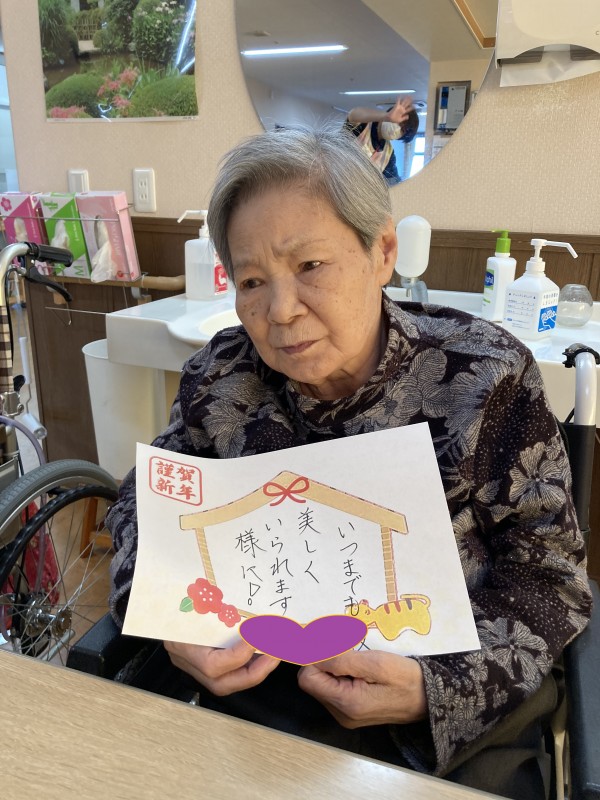 謹賀
新年
いつまでも
美しく
いられます
様に